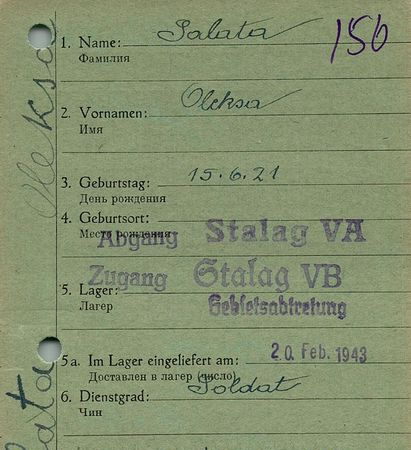 1. Name: Salata
Фамилия
156
2. Vornamen: Oleksa
Имя
3. Geburtstag: 15.6.21
День рождения
4. Geburtsort:
Место рождения
Abgang Stalag VA
Zugang Stalag VB
5. Lager: Gebietsabtretung
Лагер
5a. Im Lager eingeliefert am: 20. Feb. 1943
Доставлен в лагер (число)
6. Dienstgrad: Soldat
Чин
Oleksa